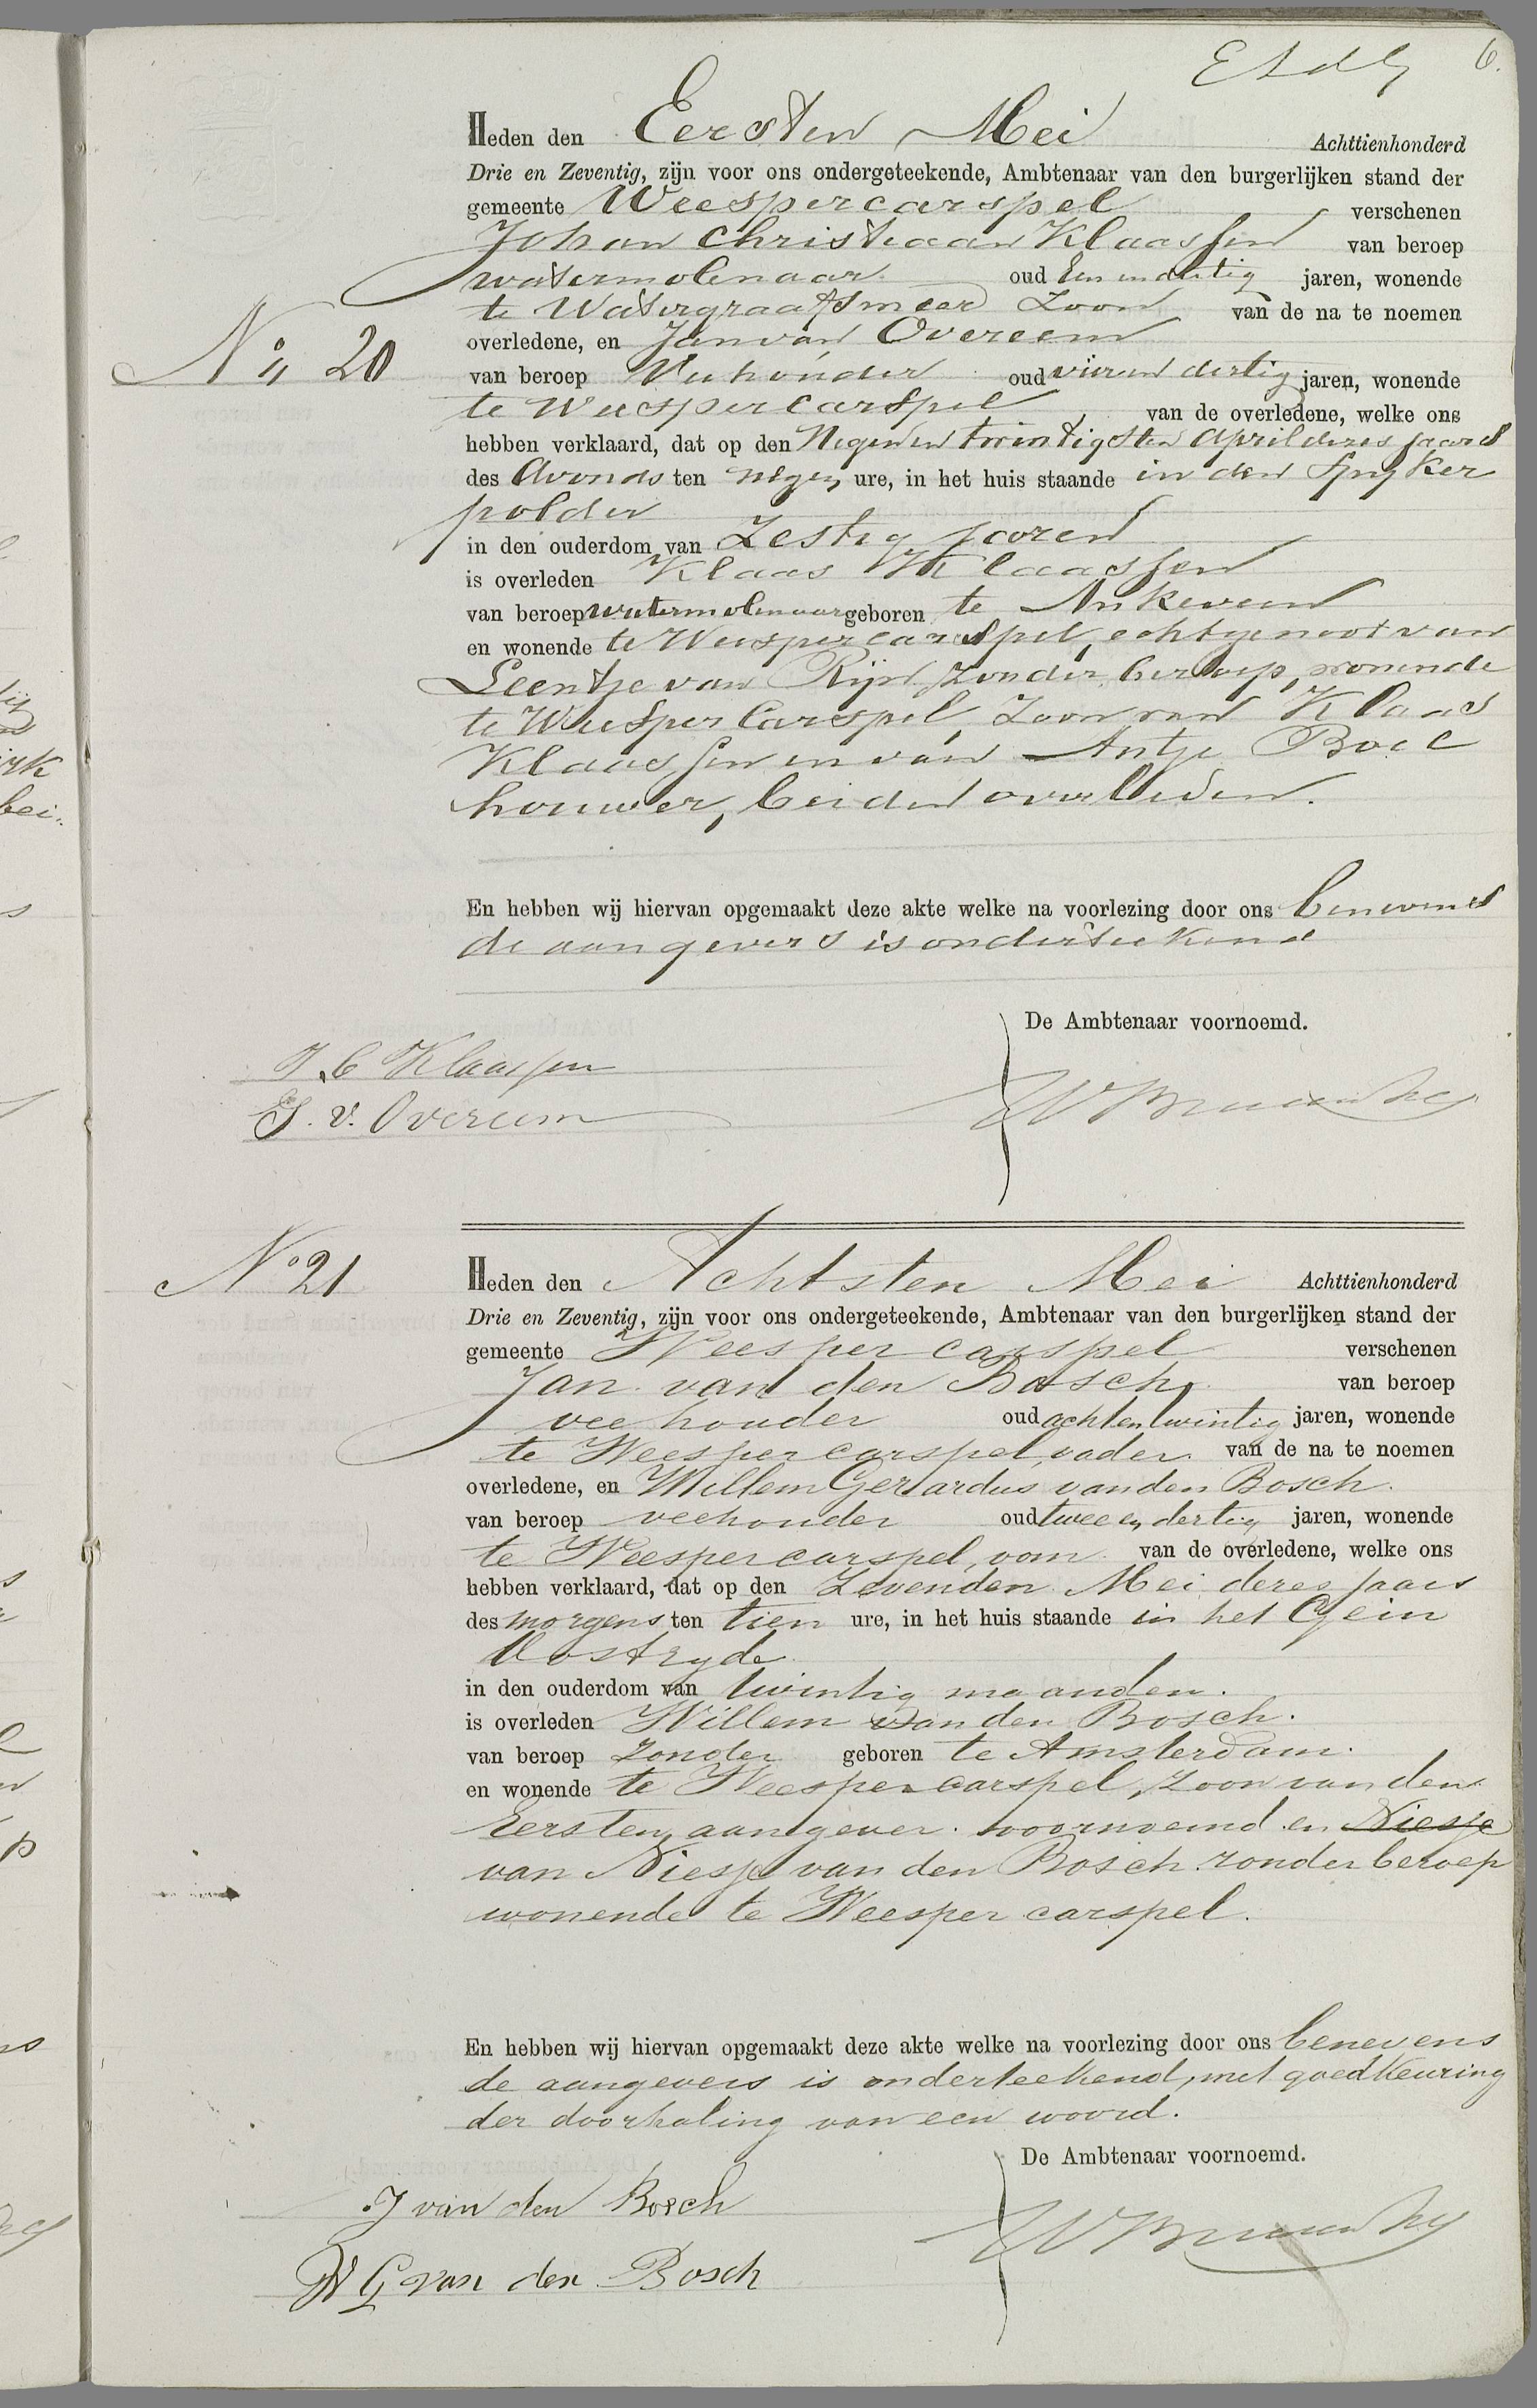 6.
Heden den Eersten Mei Achttienhonderd
Drie en Zeventig, zijn voor ons ondergeteekende, Ambtenaar van den burgerlijken stand der
gemeente Weespercarspel verschenen
Johan Christiaan Klaassen van beroep
watermolenaar oud Een en dertig jaren, wonende
te Watergraafsmeer Zoon van de na te noemen
overledene, en Jan van Overeem
No 20
van beroep Veehouder oud vier en dertig jaren, wonende
te Weespercarspel van de overledene, welke ons
hebben verklaard, dat op den Negenentwintigsten April dezes jaars
des Avonds ten negen ure, in het huis staande in den Spijker
polder
in den ouderdom van Zestig jaren
is overleden Klaas Klaassen
van beroep watermolenaar geboren te Ankeveen
en wonende te Weespercarspel, echtgenoot van
Leentje van Rijn, zonder beroep, wonende
te Weespercarspel, Zoon van Klaas
Klaassen en van Antje Boec
houwer, beiden overleden.
En hebben wij hiervan opgemaakt deze akte welke na voorlezing door ons benevens
de aangevers is onderteekend
De Ambtenaar voornoemd.
J. C Klaassen
J. v. Overeem
No 21
Heden den Achtsten Mei Achttienhonderd
Drie en Zeventig, zijn voor ons ondergeteekende, Ambtenaar van den burgerlijken stand der
gemeente Weespercarspel verschenen
Jan van den Bosch, van beroep
veehouder oud achtentwintig jaren, wonende
te Weespercarspel, vader van de na te noemen
overledene, en Willem Gerardus van den Bosch.
van beroep veehouder oud twee en dertig jaren, wonende
te Weespercarspel, oom van de overledene, welke ons
hebben verklaard, dat op den Zevenden Mei dezes jaars
des morgens ten tien ure, in het huis staande in het Gein
Oostzyde
in den ouderdom van twintig maanden.
is overleden Willem van den Bosch.
van beroep zonder geboren te Amsterdam.
en wonende te Weespercarspel, zoon van den
Eersten aangever voornoemd en Niesje
van Niesje van den Bosch zonder beroep
wonende te Weespercarspel.
En hebben wij hiervan opgemaakt deze akte welke na voorlezing door ons benevens
de aangevers is onderteekend, met goedkeuring
der doorhaling van een woord.
De Ambtenaar voornoemd.
J van den Bosch
W G van den Bosch